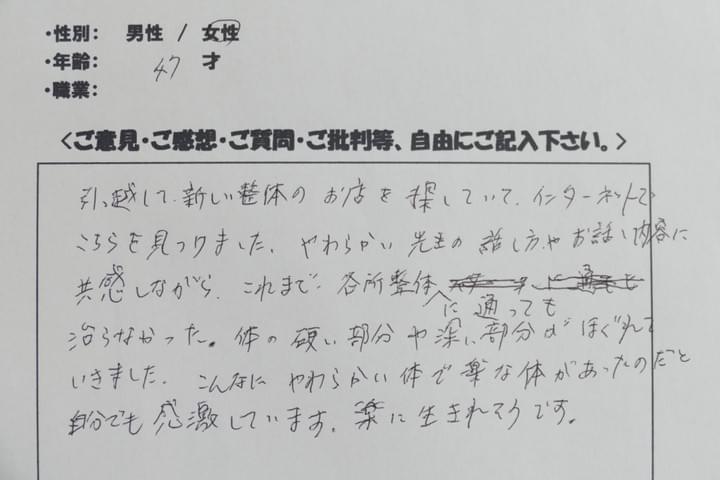 ・性別: 男性 / 女性
・年齢: 47 才
・職業:
<ご意見・ご感想・ご質問・ご批判等、自由にご記入下さい。>
引っ越して、新しい整体のお店を探していて、インターネットで
こちらを見つけました。やわらかい先生の話し方やお話し内容に
共感しながら、これまで各所整体
に通っても
治らなかった。体の硬い部分や深い部分がほぐれて
いきました。こんなにやわらかい体で楽な体があったのだと
自分でも感激しています。楽に生きれそうです。